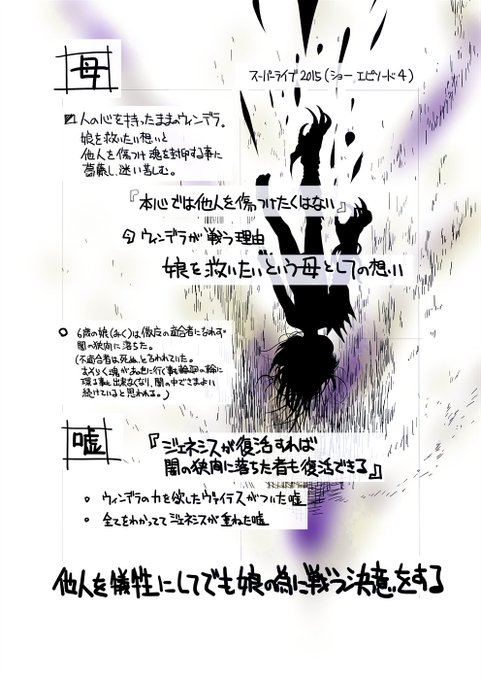 母
スーパーライブ2015(ショー エピソード4)
人の心を持ったままのウィンデラ。
娘を救いたい想いと
他人を傷つけ魂を封印する事に
葛藤し、迷い苦しむ。
『本心では他人を傷つけたくはない』
ウィンデラが戦う理由
娘を救いたいという母としての想い
6歳の娘(みく)は
の適合者になれず
闇の狭間に落ちた。
(不適合者は死ぬ、と言われていた。
おそらく魂があの世に行く事も輪廻の輪に
戻る事も出来なくなり、闇の中でさまよい
続けていると思われる。)
嘘
『ジェネシスが復活すれば
闇の狭間に落ちた者も復活できる』
ウィンデラの力を欲した
がついた嘘
全てをわかってて ジェネシスが重ねた嘘
他人を犠牲にしてでも娘の為に戦う決意をする